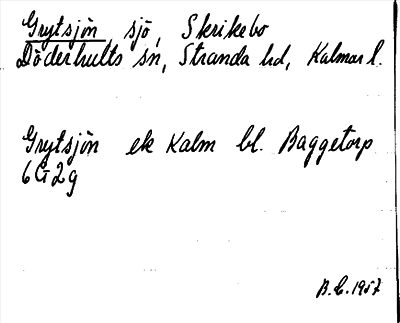 Grytsjön sjö, Skrikebo
Döderhults sn, Stranda hd, Kalmar l.
Grytsjön ek Kalm bl. Baggetorp
6G2g
B.L. 1957